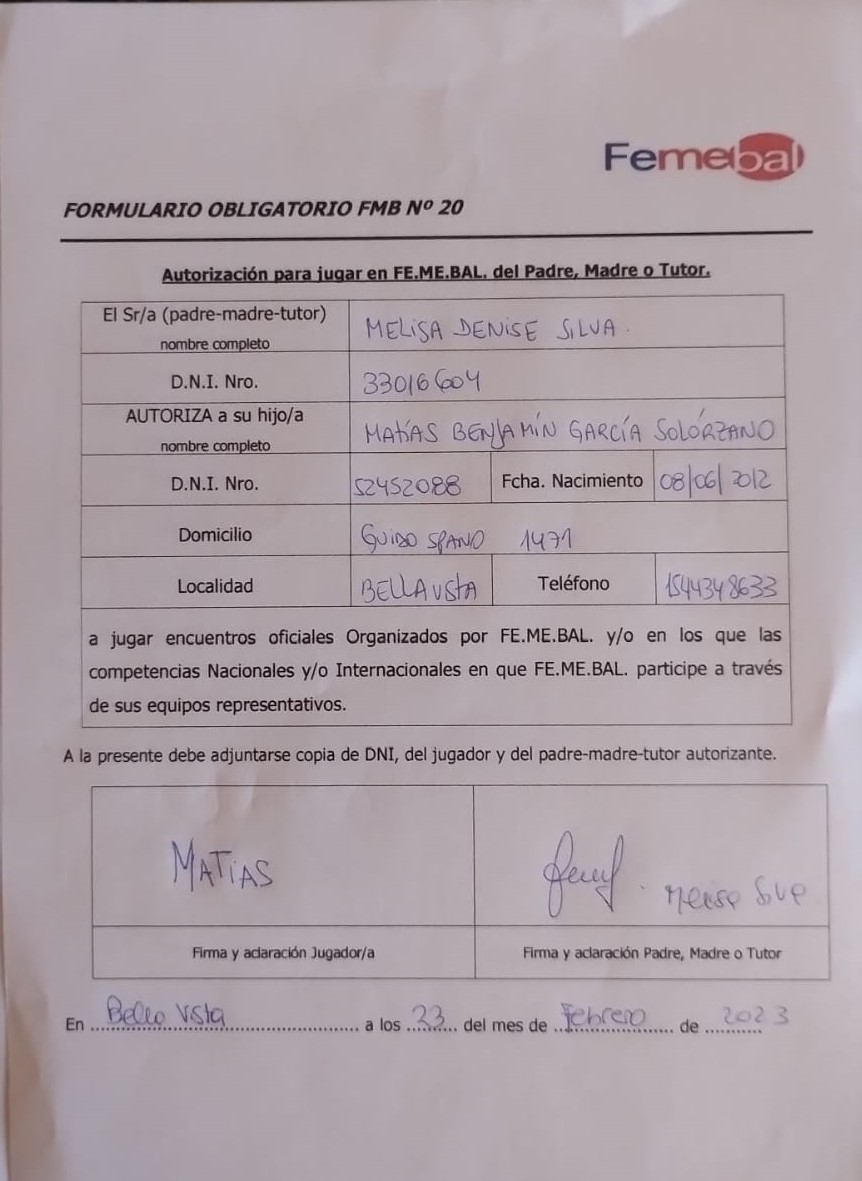 Femebal
FORMULARIO OBLIGATORIO FMB Nº 20
Autorización para jugar en FE.ME.BAL. del Padre, Madre o Tutor.
El Sr/a (padre-madre-tutor)
nombre completo
MELISA DENISE SILVA.
D.N.I. Nro. 33016604
AUTORIZA a su hijo/a
nombre completo
MATÍAS BENJAMÍN GARCÍA SOLÓRZANO
D.N.I. Nro. 52452088 Fcha. Nacimiento 08/06/2012
Domicilio GUIDO SPANO 1471
Localidad BELLA VISTA Teléfono 1544348633
a jugar encuentros oficiales Organizados por FE.ME.BAL. y/o en los que las
competencias Nacionales y/o Internacionales en que FE.ME.BAL. participe a través
de sus equipos representativos.
A la presente debe adjuntarse copia de DNI, del jugador y del padre-madre-tutor autorizante.
MATÍAS Melisa Silva
Firma y aclaración Jugador/a Firma y aclaración Padre, Madre o Tutor
En Bella Vista a los 23 del mes de Febrero de 2023